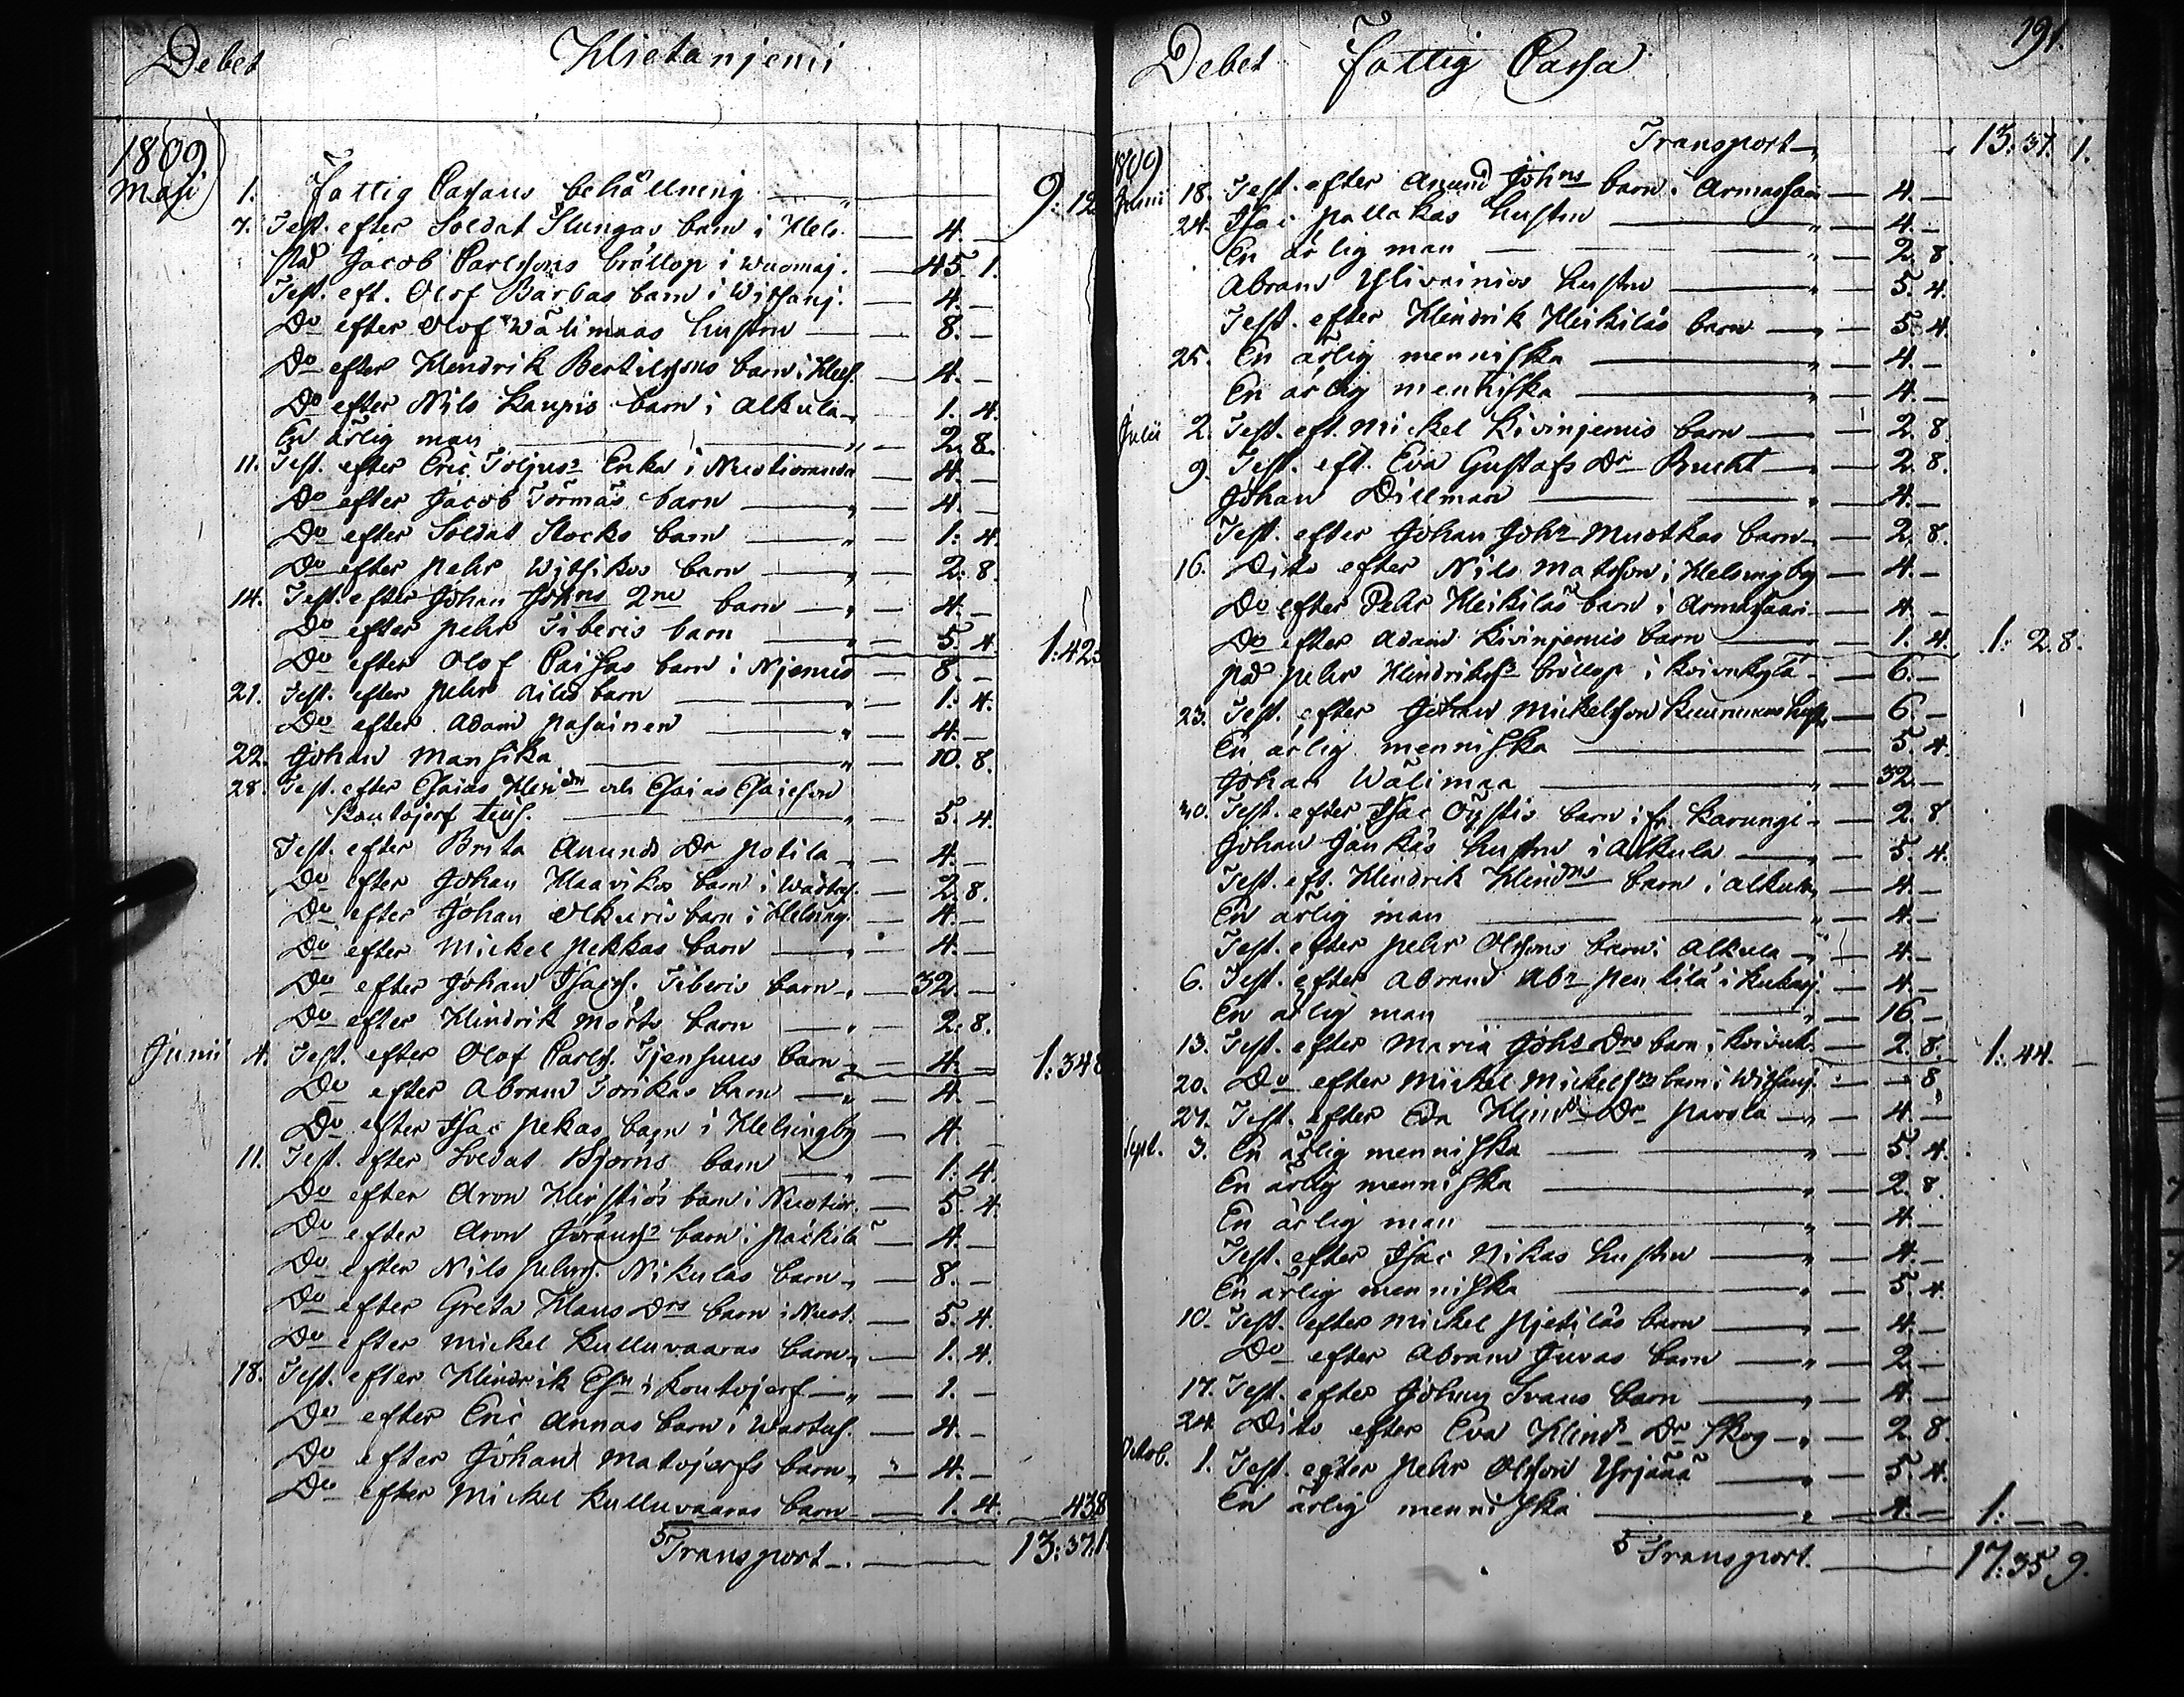 Debet Hietanjemi
1809
Maji 1. Fattig Cassans behållning 9: 12
7. Test. efter Soldat Slungas barn i Hels. 4. —
På Jacob Carlssons bröllop i Wuomaj. 45. 1.
Test. eft. Olof Barbas barn i Witsanj. 4. —
Do efter Olof Wälimaas hustru 8. —
Do efter Hendrik Bertilssons barn i Hels. 4. —
Do efter Nils Kaupis barn i Alkula 1. 4.
En ärlig man 2. 8.
11. Test. efter Eric Enka i Nuotioranda 4. —
Do efter Jacob Törmäs barn 4. —
Do efter Soldat Stocks barn 1: 4.
Do efter Pehr Witsikos barn 2: 8.
14. Test. efter Johan Johns 2ne barn 4. —
Do efter Pehr Tiberis barn 5. 4. 1:42
Do efter Olof Paisas barn i Njemis 8. —
21. Test. efter Pehr Ailis barn 1: 4.
Do efter Adam Pasainen 4. —
22. Johan Mansika 10. 8.
28. Test. efter Esaias Hindr och Esaias Esaicson
Koutojerf 5. 4.
Test. efter Brita Anunds Dr Potila 4. —
Do efter Johan Haavikos barn i 2. 8.
Do efter Johan Olkuris barn i Helsing. 4. —
Do efter Mickel Pekkas barn 4. —
Do efter Johan Isacs. Tiberis barn 32. —
Do efter Hindrik Mörts barn 2. 8.
Junii 4. Test. efter Olof Carls. barn 4. — 1:348
Do efter Abram Torikas barn 4. —
Do efter Isac Pekas barn i Helsingby 4. —
11. Test. efter Soldat Björns barn 1: 4.
Do efter Aron barn i Nuotior. 5. 4.
Do efter Aron Görans barn i Päkilä 4. —
Do efter Nils Pehrs. Nikulas barn 8. —
Do efter Greta Hans Drs barn i Nuot. 5. 4.
Do efter Mickel Kulluvaaras barn 1. 4.
18. Test. efter Hindrik i Koutojerf 1. —
Do efter Eric Annas barn i 4. —
Do efter Johan Matojerfs barn 4. —
Do efter Mickel Kulluvaaras barn 1. 4. 438
Transport 13:37.1
Debet Fattig Cassa 191.
Transport 13: 37. 1.
1809
Junii 18. Test. efter Anund Johns barn i Armassaari 4. —
24. Isac Pallakas hustru 4. —
En ärlig man 2. 8.
Abram Ylivainios hustru 5. 4.
Test. efter Hindrik Heikiläs barn 5. 4.
25. En ärlig menniska 4. —
En ärlig menniska 4. —
Julii 2. Test. eft. Mickel Kivinjemis barn 2. 8.
9. Test. eft. Eva Gustafs Dr Brucht 2. 8.
Johan Dillman 4. —
Test. efter Johan Johns Muotkas barn 2. 8.
16. Dito efter Nils Matsson i Helsingby 4. —
Do efter Pehr Heikiläs barn i Armassaari 4. —
Do efter Adam Kivinjemis barn 1. 4. 1: 2. 8.
På Pehr Hindrikss. bröllop i Koivukylä 6. —
23. Test. efter Johan Mickelsson 6. —
En ärlig menniska 5. 4.
Johan Wälimaa 32 —
30. Test. efter Isac barn i fr. Karungi 2. 8
Johan Jankäs hustru i Alkula 5. 4.
Test. eft. Hindrik Hindrs barn i Alkula 4. —
En ärlig man 4. —
Test. efter Pehr Olssons barn i Alkula 4. —
6. Test. efter Abram Abr. Pentilä i 4. —
En ärlig man 16 —
13. Test. efter Maria Johs Drs barn i Koivuk. 2. 8. 1: 44. —
20. Do efter Mickel Mickelss barn i Witsanj. — 8.
27. Test. efter Eva Hind. Dr Pavola 4. —
Sept. 3. En ärlig menniska 5. 4.
En ärlig menniska 2. 8.
En ärlig man 4. —
Test. efter Isac Nikas hustru 4. —
En ärlig menniska 5. 4.
10. Test. efter Mickel Pjetiläs barn 4. —
Do efter Abram Juvas barn 2. —
17. Test. efter Johan Svans barn 4. —
24 Dito efter Eva Hind. Dr Skog 2. 8.
Octob. 1. Test. efter Pehr Olsson Yrjänä 5. 4.
En ärlig menniska 4. — 1: — —
Transport. 17: 35 9.